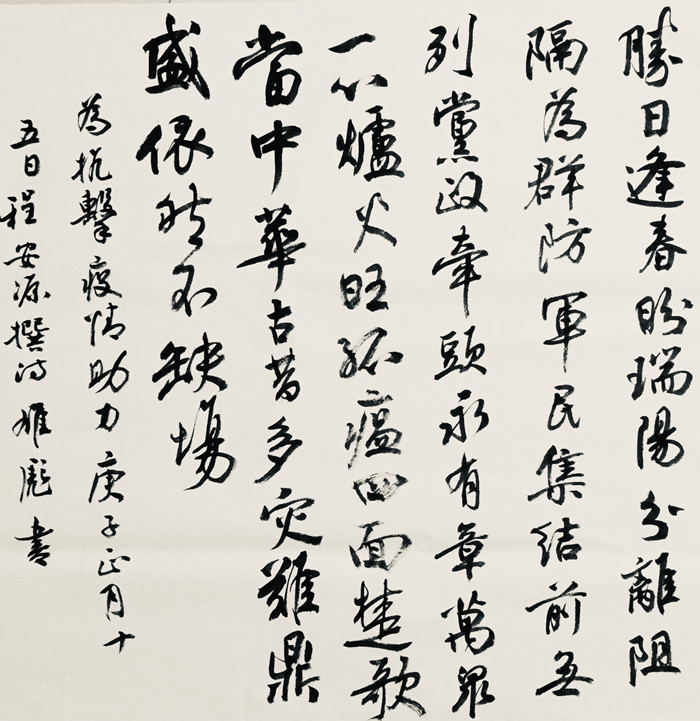 勝日逢春盼瑞陽分離阻
隔為群防軍民集結前無
列黨政牽頭永有章萬眾
一心爐火旺孤瘟四面楚歌
當中華古昔多災難鼎
盛依然不缺場
為抗擊疫情助力庚子正月十
五日程安源撰詩彪書